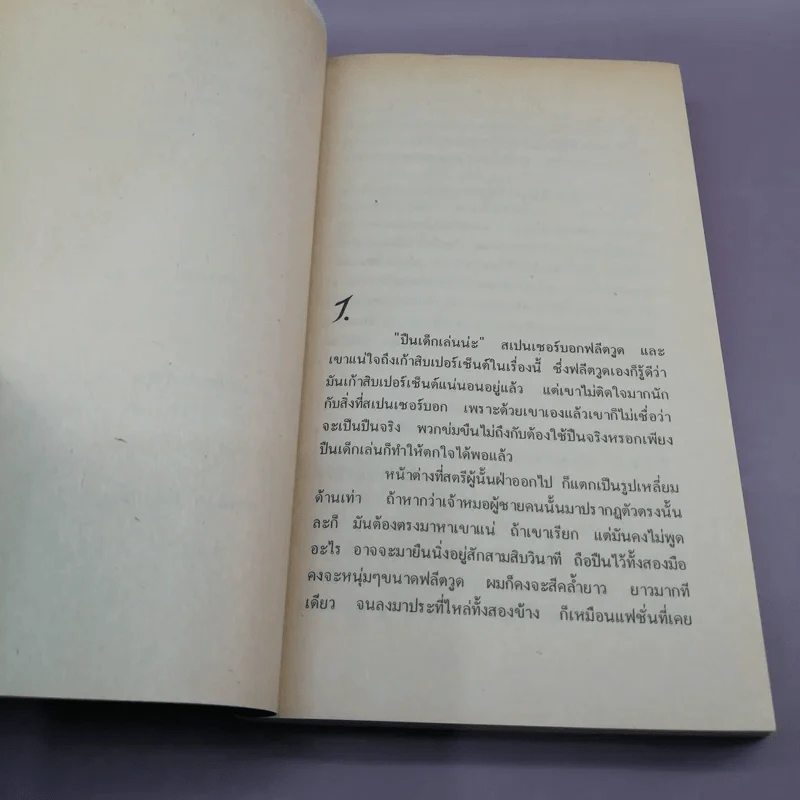 1.
"ปืนเด็กเล่นน่ะ" สเปนเซอร์บอกฟลีตวูด และ
เขาแน่ใจถึงเก้าสิบเปอร์เซ็นต์ในเรื่องนี้ ซึ่งฟลีตวูดเองก็รู้ดีว่า
มันเก้าสิบเปอร์เซ็นต์แน่นอนอยู่แล้ว แต่เขาไม่ติดใจมากนัก
กับสิ่งที่สเปนเซอร์บอก เพราะด้วยเขาเองแล้วเขาก็ไม่เชื่อว่า
จะเป็นปืนจริง พวกข่มขืนไม่ถึงกับต้องใช้ปืนจริงหรอกเพียง
ปืนเด็กเล่นก็ทำให้ตกใจได้พอแล้ว
หน้าต่างที่สตรีผู้นั้นฝ่าออกไป ก็แตกเป็นรูปเหลี่ยม
ด้านเท่า ถ้าหากว่าเจ้าหมอผู้ชายคนนั้นมาปรากฏตัวตรงนั้น
ละก็ มันต้องตรงมาหาเขาแน่ ถ้าเขาเรียก แต่มันคงไม่พูด
อะไร อาจจะมายืนนิ่งอยู่สักสามสิบวินาที ถือปืนไว้ทั้งสองมือ
คงจะหนุ่มๆขนาดฟลีตวูด ผมก็คงจะสีคล้ำยาว ยาวมากที
เดียว จนลงมาประที่ไหล่ทั้งสองข้าง ก็เหมือนแฟชั่นที่เคย